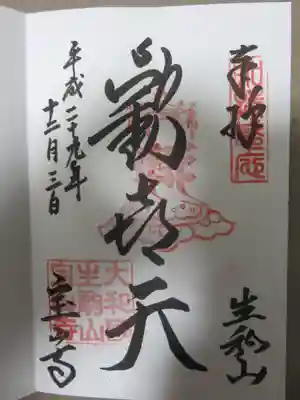 奉拝
生駒山
歡喜天
平成二十九年
十二月三日
宝山寺
大和国
生駒山